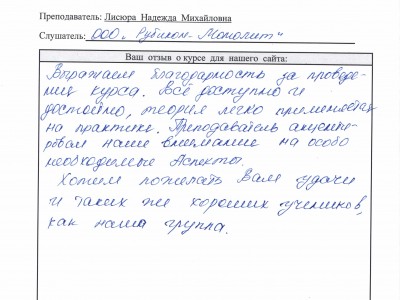 Преподаватель: Лисюра Надежда Михайловна
Слушатель: ООО „Рубикон-Монолит"
Ваш отзыв о курсе для нашего сайта:
Выражаем благодарность за проведе-
ния курса. Всё доступно и
достойно, теория легко применяется
на практике. Преподаватель акценти-
ровал наше внимание на особо
необходимые Аспекты.
Хотим пожелать Вам удачи
и таких же хороших учеников,
как наша группа.